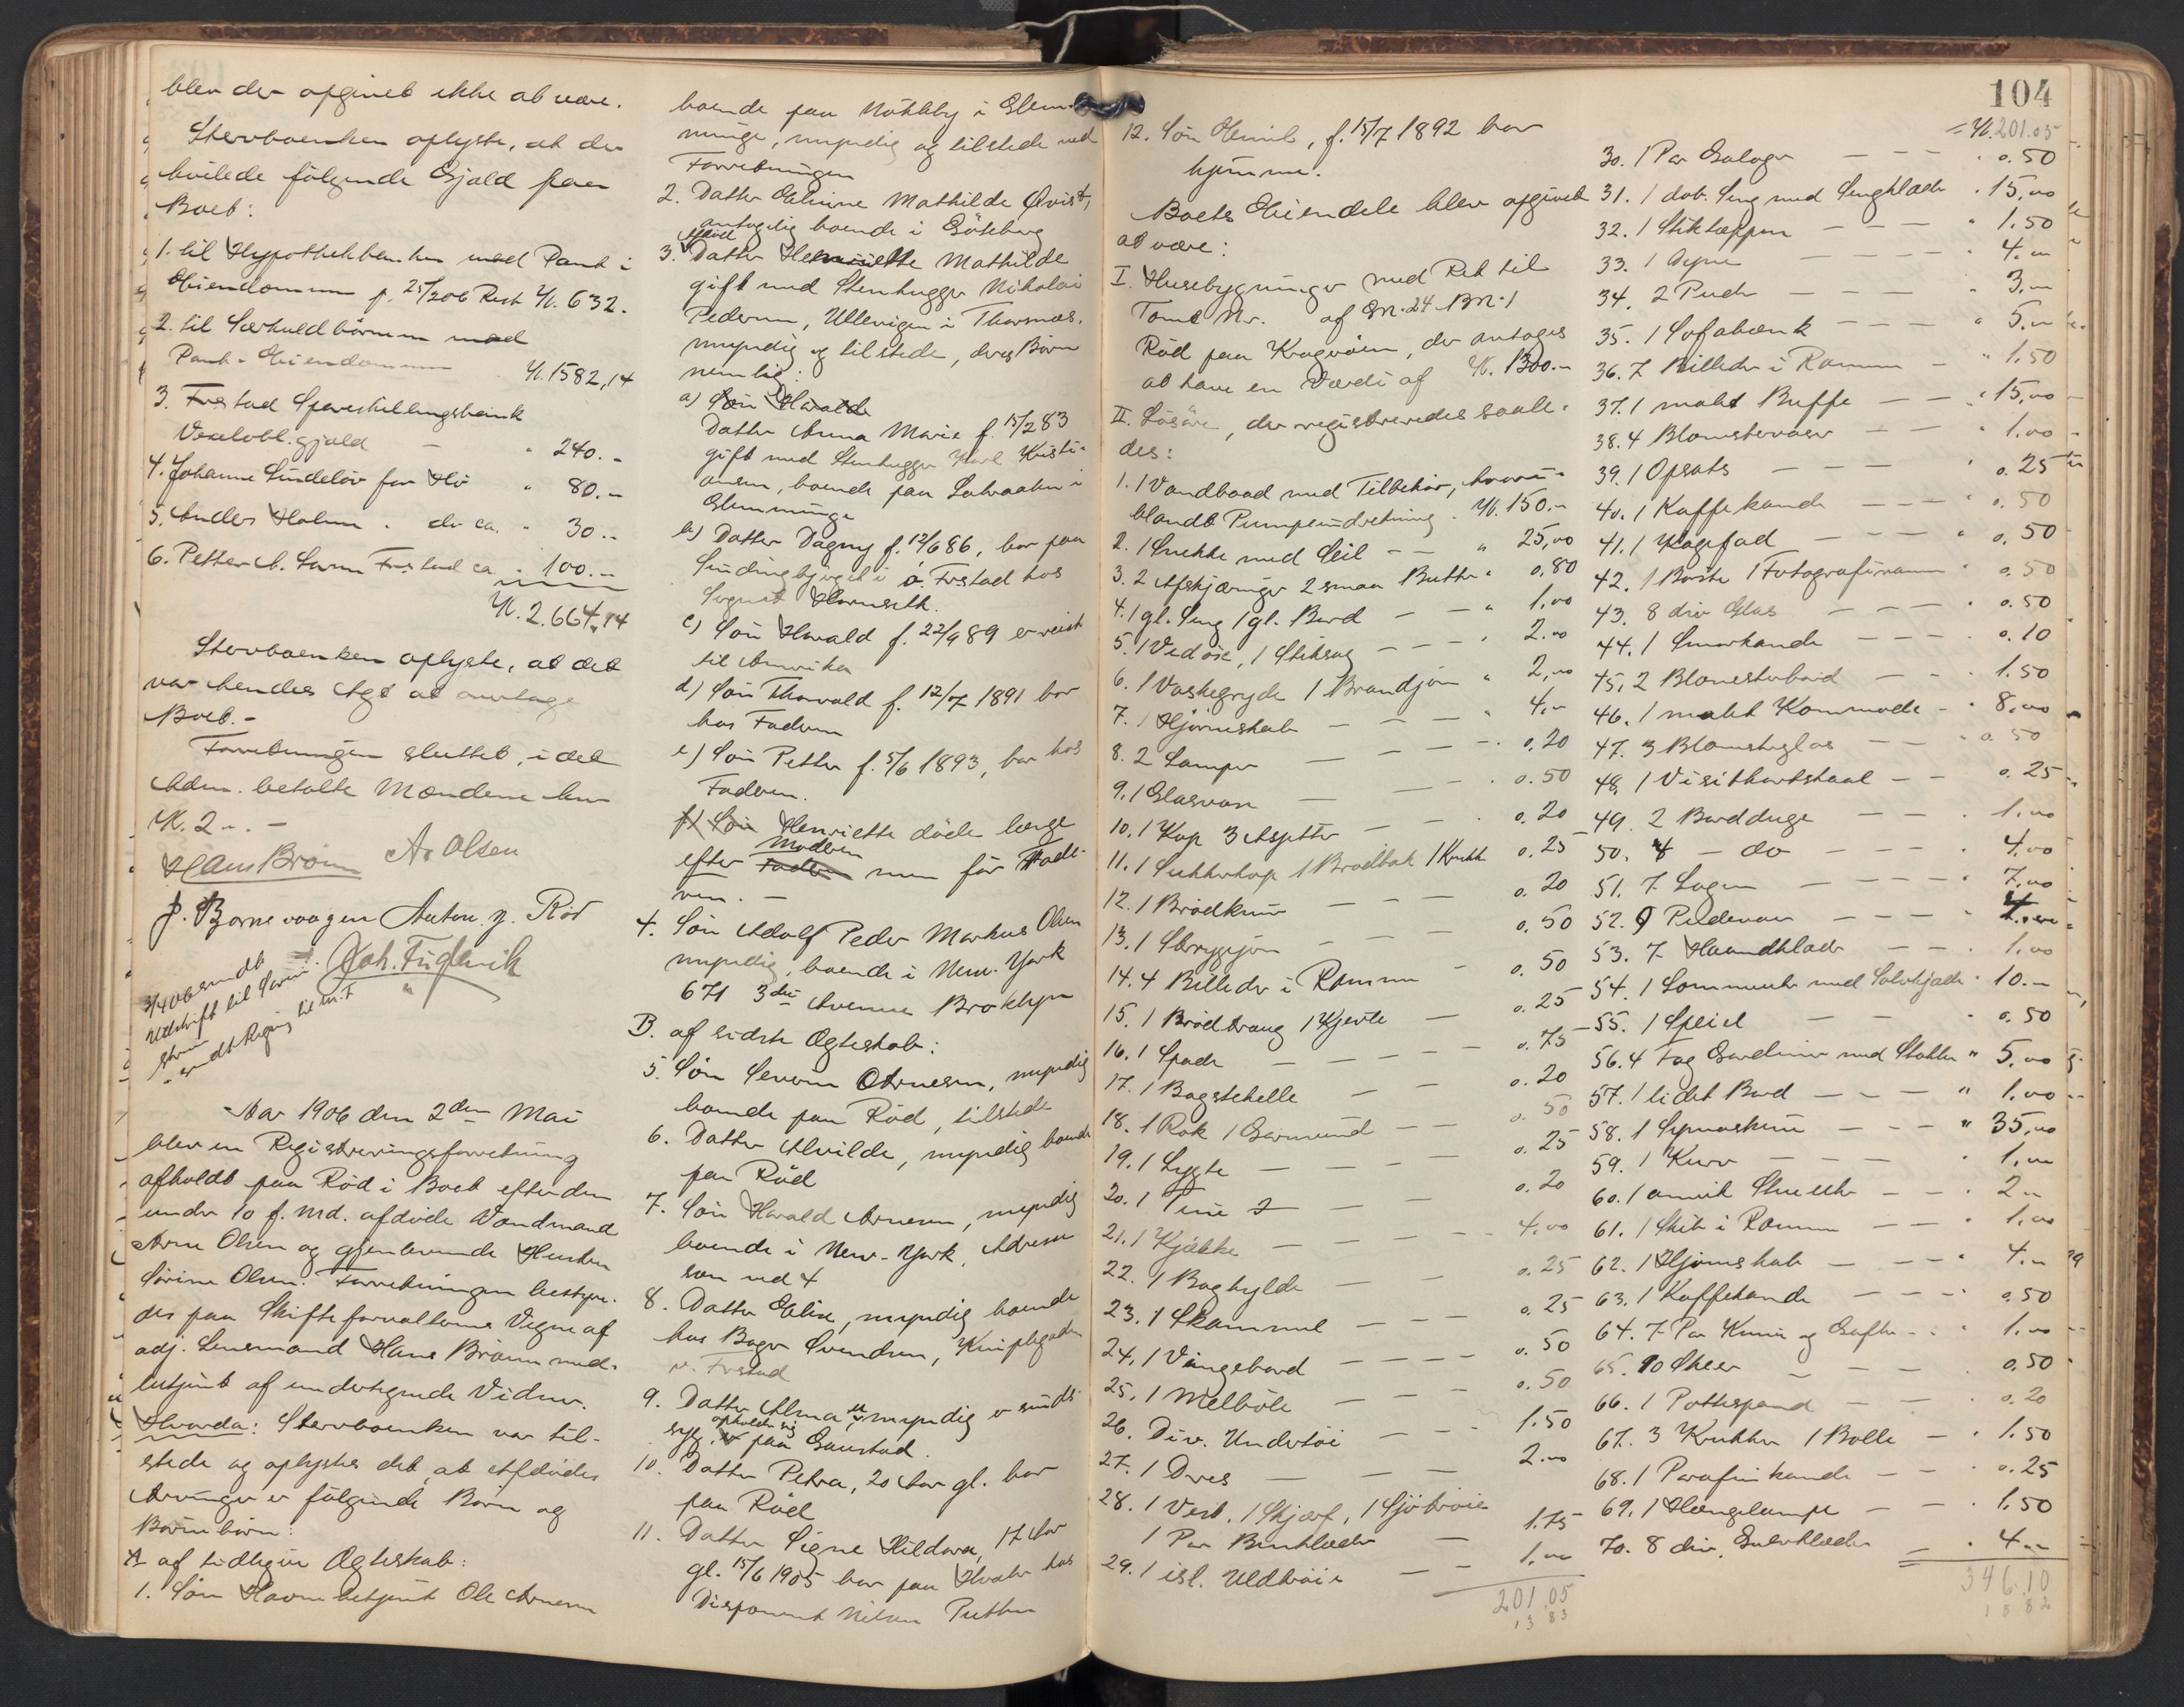 blev der opgivet ikke at være.
Stervboenken oplyste, at der
hvilede følgende Gjæld paa
Boet:
1. til Hypothekbanken med Pant i
Eiendommen f. 25/2 06 Rest Kr. 632.
2. til Særkuldbørnene med
Pant i Eiendommen Kr. 1582,14
3. Frstad Spareskillingsbank
Vexelobl. gjæld — " 240.-
4. Johanne Lindeløv for Hø " 80.-
5. Anders Holm " do ca. " 30.-
6. Petter A. Frstad ca. " 100.-
Kr. 2.664,14
Stervboenken oplyste, at det
var hendes Agt at overtage
Boet.-
Forretningen sluttet, idet
Adm. betalte Mændene
K. 2.-.-
Hans Brøun A. Olsen
J. Bornevaagen Anton Rød
Joh. Fuglevik
3/4 06 sendt
Udskrift til
sendt Regning til
Aar 1906 den 2den Mai
blev en Registreringsforretning
afholdt paa Rød i Boet efter den
under 10 f. Md. afdøde Vandmand
Arne Olsen og gjenlevende Hustru
Sørine Olsen. Forretningen bestyre-
des paa Skifteforvalterens Vegne af
adj. Lensmand Hans Brøun med-
betjent af undertegnede Vidner.
Hvorda: Stervboenken var til-
stede og oplystes det, at Afdødes
Arvinger er følgende Børn og
Børnebørn:
A af tidligere Ægteskab:
1. Søn Havnebetjent Ole Arnesen
boende paa Nøkleby i Glem-
minge, myndig og tilstede ved
Forretningen
2. Datter Eline Mathilde Qvist,
antagelig boende i Gøteborg
3. Datter Henriette Mathilde
gift med Stenhugger Nikolai
Pedersen, Ullevigen i Thorsnæs,
myndig og tilstede, deres Børn
nemlig:
a) Søn Harald
Datter Anna Marie f. 15/2 83
gift med Stenhugger Karl Kristi-
ansen, boende paa i
Glemminge
b) Datter Dagny f. 12/6 86, bor paa
i Frstad hos
August
c) Søn Harald f. 22/9 89 er reist
til Amerika
d) Søn Thorvald f. 12/7 1891 bor
hos Faderen
e) Søn Petter f. 5/6 1893, bor hos
Faderen.
f) Søn Henriette døde længe
efter Faderen Moderen men før Fade-
ren. —
4. Søn Adolf Peder Markus Olsen
myndig, boende i New-York
671 3die Avenue Broklyn
B. af sidste Ægteskab:
5. Søn Severin Arnesen, myndig
boende paa Rød, tilstede
6. Datter Alvilde, myndig boende
paa Rød
7. Søn Harald Arnesen, myndig
boende i New-York, Adresse
som ved 4
8. Datter Elise, myndig boende
hos Bager Svendsen,
v. Frstad
9. Datter Alma umyndig er sinds-
syg, er opholder sig paa Gaustad.
10. Datter Petra, 20 Aar gl. bor
paa Rød
11. Datter Signe Hildora, 17 Aar
gl. 15/6 1905 bor paa Hvaler hos
Disponent Nilsen
12. Søn Emil, f. 15/7 1892 bor
hjemme.
Boets Eiendele blev opgivet
at være:
I. Husebygninger med Ret til
Tomt Nr. af Gn. 24 Bn. 1
Rød paa Kragerøen, der antages
at have en Værdi af Kr. 1300.-
II. Løsøre, der registreredes saale-
des:
1. 1 Vandbaad med Tilbehør, hvori-
blandt Pumpeindretning . Kr. 150.-
2. 1 Snekke med Seil — — " 25,00
3. 2 Afskjæringer 2 smaa Butter " 0,80
4. 1 gl. Seng 1 gl. Bord — — " 1,00
5. 1 Vedøxe, 1 Stiksag — — " 2.00
6. 1 Vaskegryde 1 Brandjern " 2,00
7. 1 Hjørneskab — — — " 4,-
8. 2 Lamper — — — 0,20
9. 1 Glasvase — — 0.50
10. 1 Kop 3 Asjetter — — 0,20
11. 1 Sukkerkop 1 Brødbak 1 Krukke 0.25
12. 1 Brødkurv — — — 0.20
13. 1 Strygejern — — — 0.50
14. 4 Billeder i Ramme — 0.50
15. 1 Brødtraug 1 Kjevle — 0.25
16. 1 Spade — — — — 0.75
17. 1 Bagstehelle — — 0.20
18. 1 Rok 1 Garnvind — — 0.50
19. 1 Lygte — — — — 0.25
20. 1 Tine — — 0.20
21. 1 Kjække — — — — 4.00
22. 1 Boghylde — — 0.25
23. 1 Skammel — — — 0.25
24. 1 Vingebord — — — — 0.50
25. 1 Melbøle — — — 0.50
26. Div. Undertøi — — — 1.50
27. 1 Dres — — — — 2.00
28. 1 Vest, 1 Skjærf, 1 Sjøtrøie
1 Par Benklæder — 1.75
29. 1 isl. Uldtrøie — — 1.00
201.05
1383
104
= Kr. 201.05
30. 1 Par Galoger — — — 0.50
31. 1 dob. Seng med Sengklæder . 15,00
32. 1 Stiktæppe — — — " 1.50
33. 1 Dyne — — — — 4.00
34. 2 Puder — — — " 3,00
35. 1 Sofabænk — — — " 5.00
36. 7 Billeder i Ramme — " 1.50
37. 1 malt Buffe — — " 15,00
38. 4 Blomstervaser — — " 1.00
39. 1 Opsats — — — " 0.25
40. 1 Kaffekande — — " 0.50
41. 1 Kagefad — — — " 0.50
42. 1 Børste 1 Fotografiramme " 0.50
43. 8 div Glas — — — " 0.50
44. 1 Smørkande — — — " 0.10
45. 2 Blomsterbord — — " 1.50
46. 1 malet Kommode — " 8,00
47. 3 Blomsterglas — — " 0.50
48. 1 Visitkortskaal — — 0.25
49. 2 Bordduge — — — 1.00
50. 4 — do — — — — 4.00
51. 7 Lagen — — — — " 7.00
52. 9 Pudevar — — — "
53. 7 Haandklæder — — 1.00
54. 1 Lommeuhr med Sølvkjæde " 10.-
55. 1 Speil — — " 0.50
56. 4 Fag Gardiner med Stokker " 5,00
57. 1 lidet Bord — — — " 1,00
58. 1 Symaskine — — — " 35,00
59. 1 Kurv — — — — " 1,00
60. 1 amrik Stueuhr — — " 2.-
61. 1 Skib i Ramme — — " 1,00
62. 1 Hjørneskab — — — " 4.-
63. 1 Kaffekande — — — " 0.50
64. 7 Par Knive og Gafler — " 1.00
65. 10 Skeer — — 0.50
66. 1 Pottespand — — 0.20
67. 3 Krukker 1 Bolle — " 1.50
68. 1 Parafinkande — — " 0.25
69. 1 Hængelampe — — " 1.50
70. 8 div. Gulvklæder — " 4.-
346.10
1582